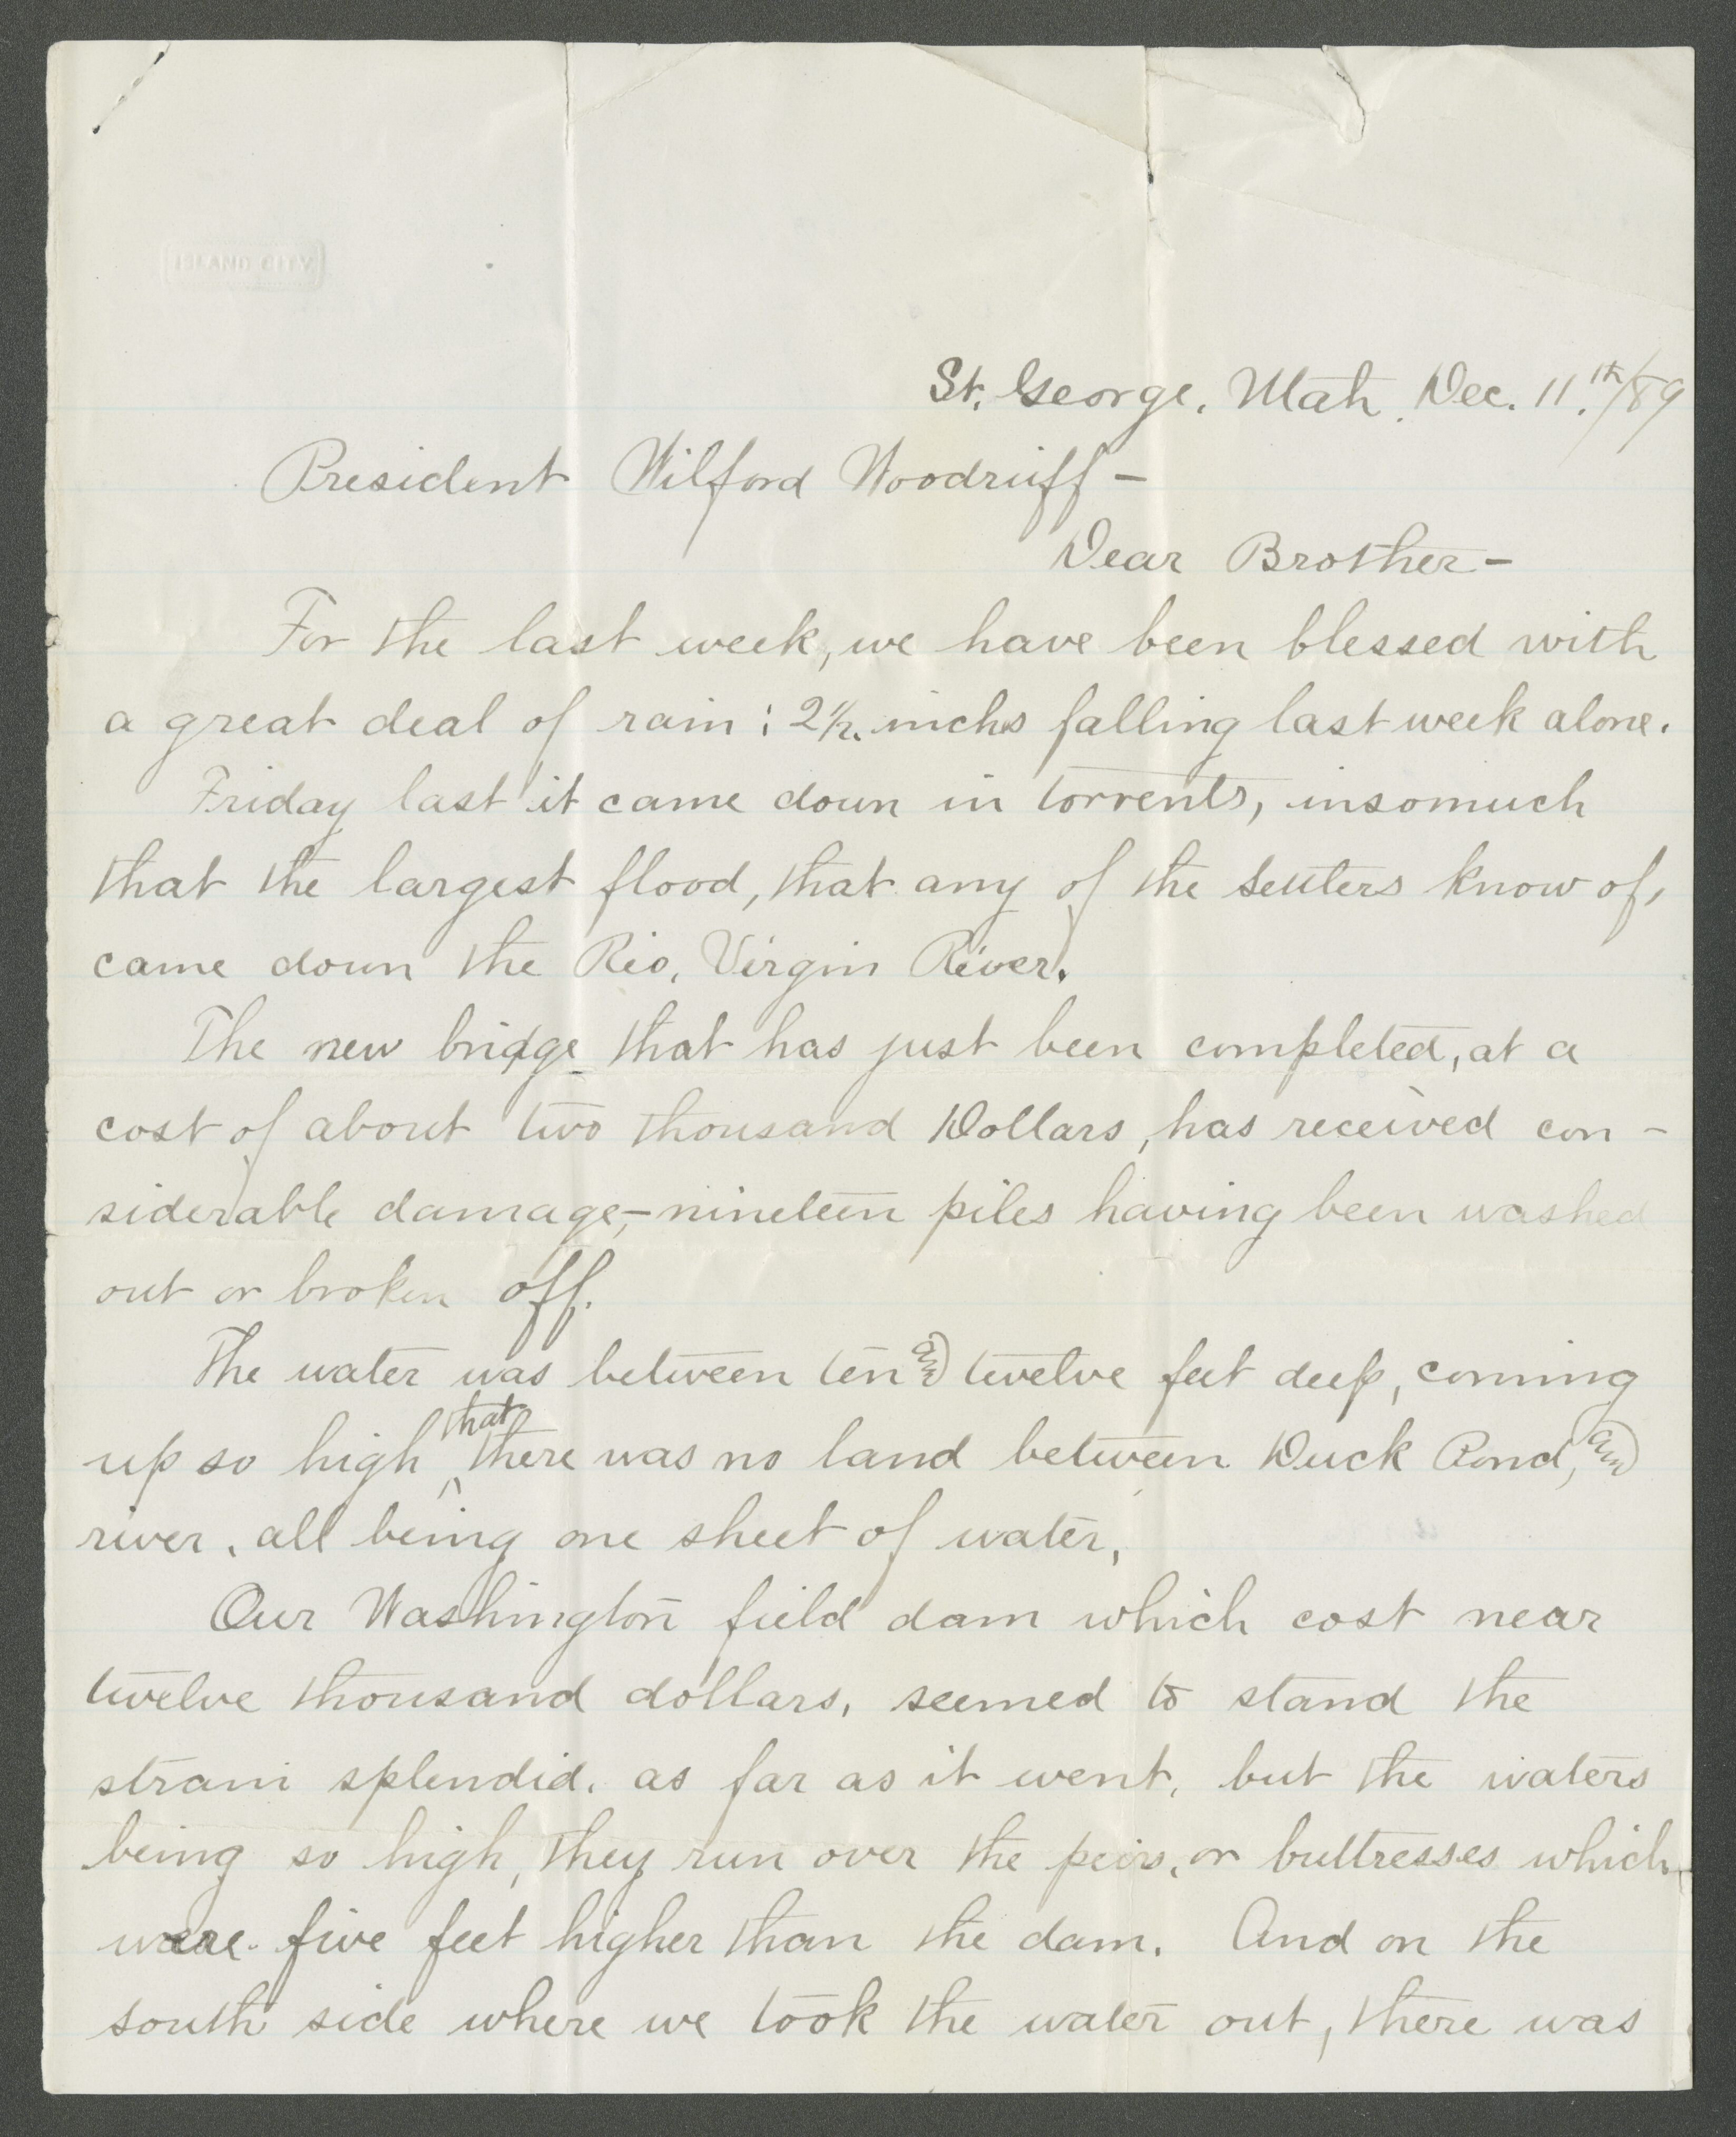 ISLAND CITY
St. George, Utah, Dec. 11.th/89
President Wilford Woodruff –
Dear Brother –
For the last week, we have been blessed with
a great deal of rain; 2 1/2. inchs falling last week alone.
Friday last it came down in torrents, insomuch
that the largest flood, that any of the settlers know of,
came down the Rio, Virgin River.
The new bridge that has just been completed, at a
cost of about two thousand Dollars, has received con-
siderable damage,– nineteen piles having been washed
out or broken off.
The water was between ten and twelve feet deep, coming
up so high that there was no land between Duck Pond, and
river, all being one sheet of water,
Our Washington field dam which cost near
twelve thousand dollars, seemed to stand the
strain splendid, as far as it went, but the waters
being so high, they run over the peirs, or buttresses which
were five feet higher than the dam. And on the
south side where we took the water out, there was